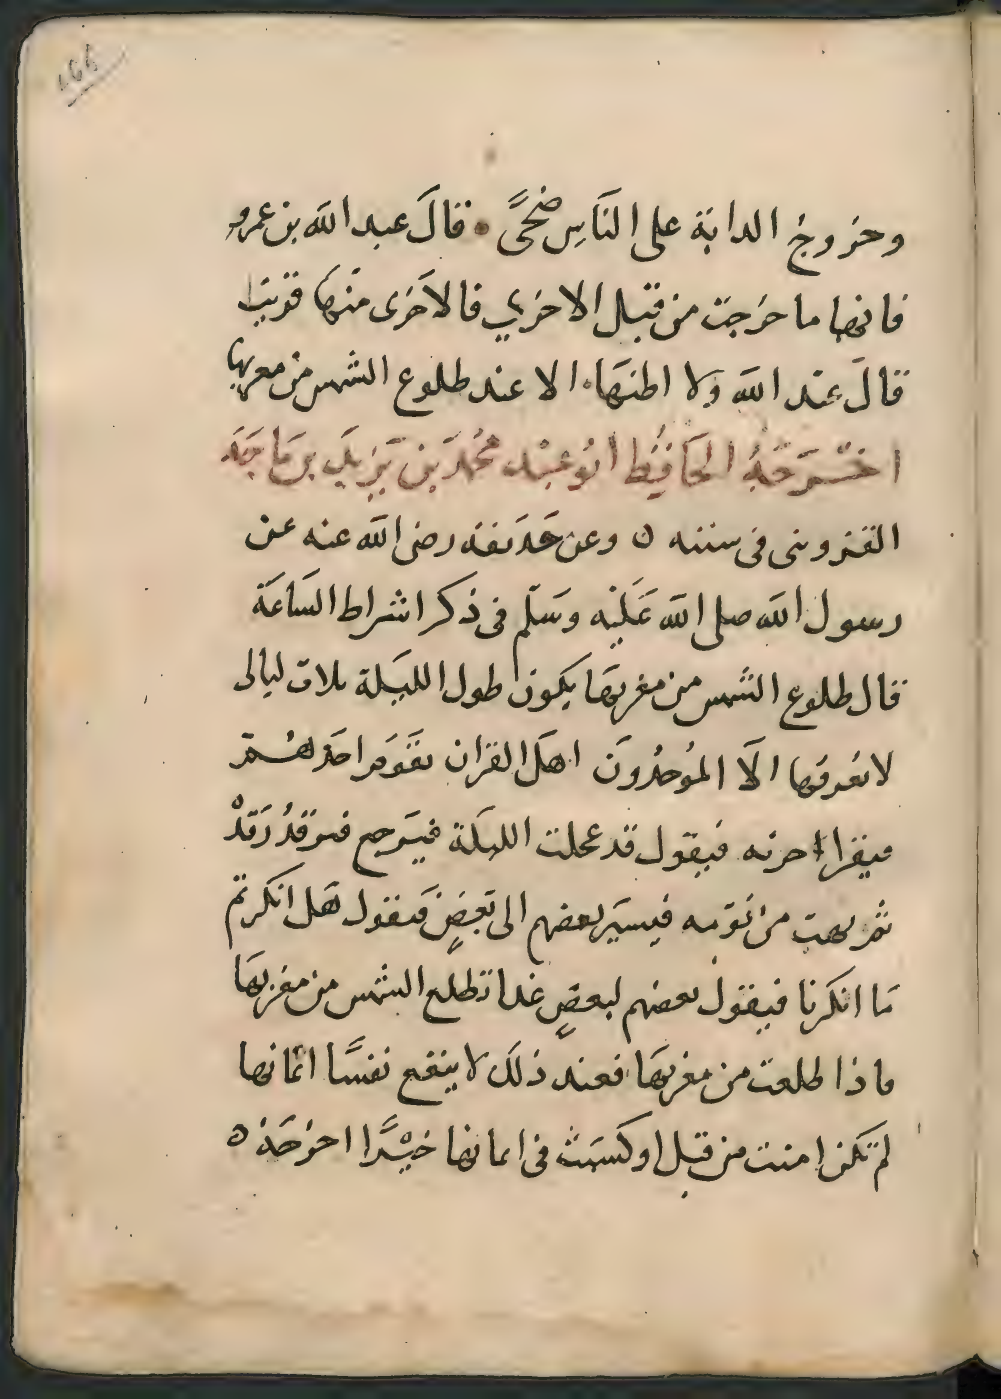 ١٦٦
وخروج الدابة على الناس ضحًى • قالَ عبد الله بن عمرو
فانها ما خرجت من قبل الاخرى فالأخرى منها قريبا
قالَ عبد الله ولا اطنها الا عند طلوع الشمس من مغربها
اخرَجَهُ الحَافِظ ابُو عبْد محُمّد بن يَزيد بن مَاجَه
القزوينى فى سننه ٥ وعن حَذَيفه رضى الله عنه عن
رسول الله صلى الله عَليْه وسَلم فى ذكر اشراط السَاعَة
قال طلوع الشمس من مغربهَا يكون طول الليَلة ثلاث ليالى
لا يعرفها الّا المُوحدُونَ اهل القران يقوم احَدهُم
فيقرا حزبه فيقول قد عجلت الليلة فيَرجع فيرقدُ رَقدْ
ثم يهب من نومه فيسيَر بعضهم الى بَعضٍ فيقول هَل انكرتم
مَا انكرنا فيقول بعضهم لبعضٍ غدا تطلع الشمس من مغربهَا
فاذا طلعت من مغربهَا فعند ذلك لا ينفع نفسًا ايمانها
لم تكن امنت من قبل او كسَبَتْ فى ايمانها خيْرًا اخرَجَهُ ٥